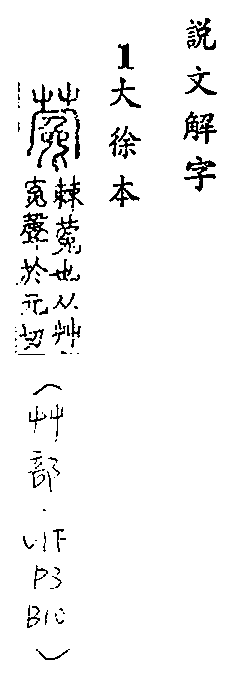 説文解字
1大徐本
蒬
棘蒬也从艸
冤聲於元切
(艸部.
P3
B10)